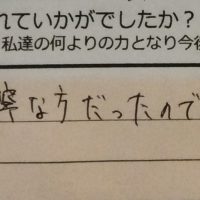 れていかがでしたか?
私達の何よりの力となり今後
寧な方だったので